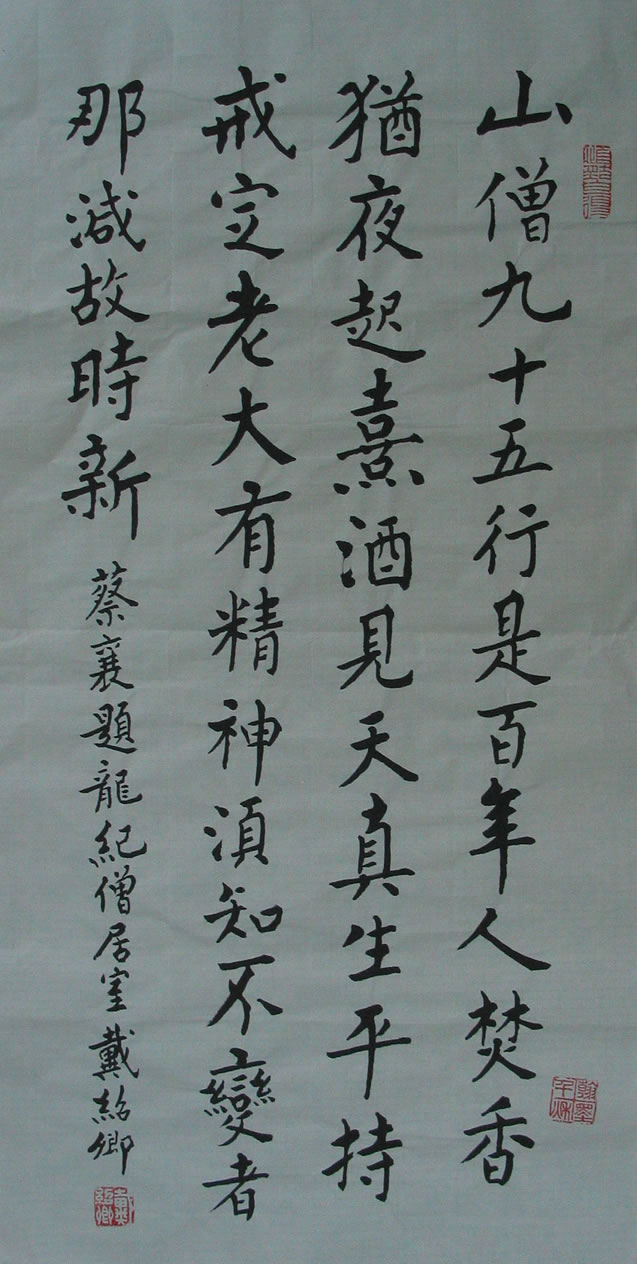 山僧九十五行是百年人焚香
猶夜起熹酒見天真生平持
戒定老大有精神須知不變者
那減故時新
蔡襄題龍紀僧居室戴紹卿